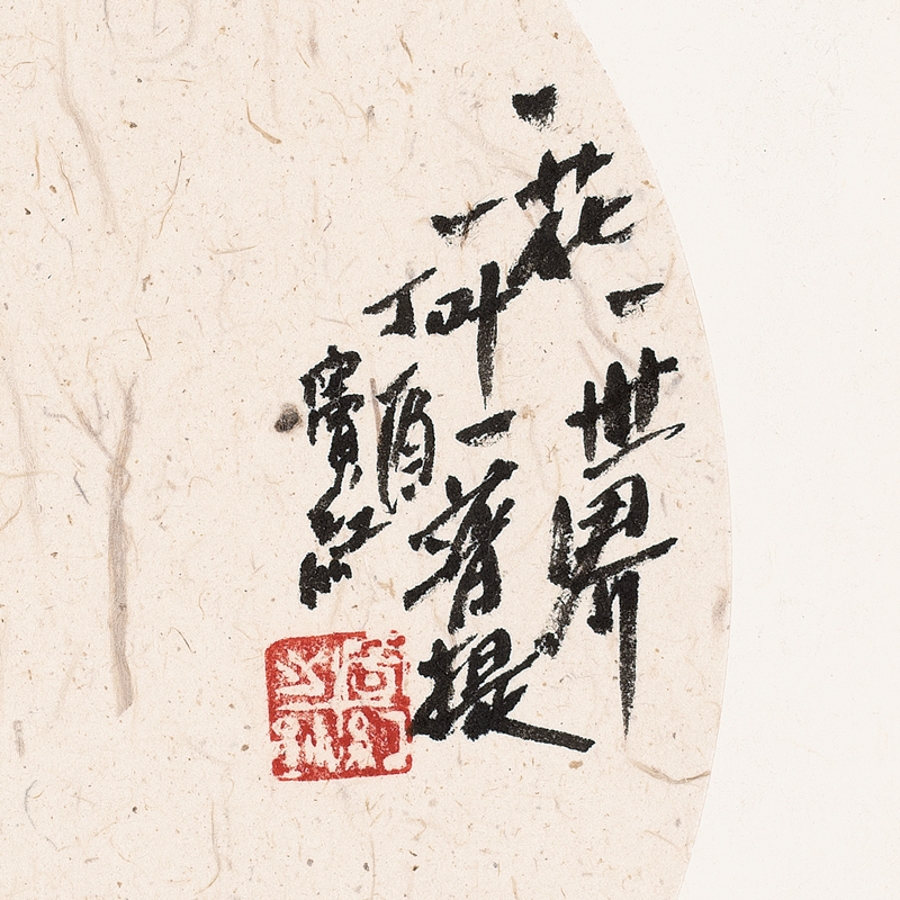 一花一世界
一叶一菩提
丁酉